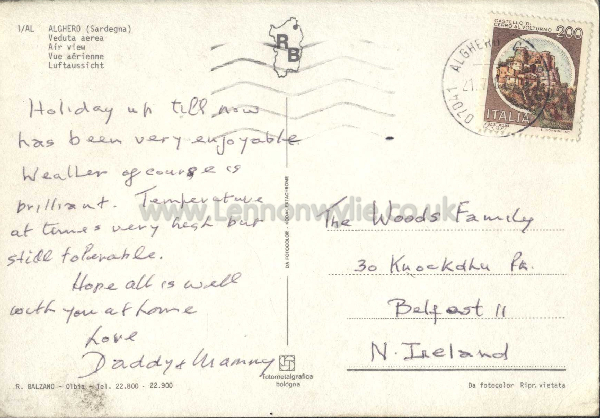 1/AL ALGHERO (Sardegna)
Veduta aerea
Air view
Vue aérienne
Luftaussicht
R B
CASTELLO DI
CERRO AL VOLTURNO 200
ITALIA
07041 ALGHERO
21.
Holiday up till now
has been very enjoyable
Weather of course is
brilliant. Temperature
at times very high but
still tolerable.
Hope all is well
with you at home
Love
Daddy & Mammy
www.Lennonwylie.co.uk
The Woods Family
30 Knockdhu Pk.
Belfast 11
N. Ireland
DA FOTOCOLOR
fotometalgrafica
bologna
R. BALZANO - Olbia - Tel. 22.800 - 22.900
Da fotocolor Ripr. vietata